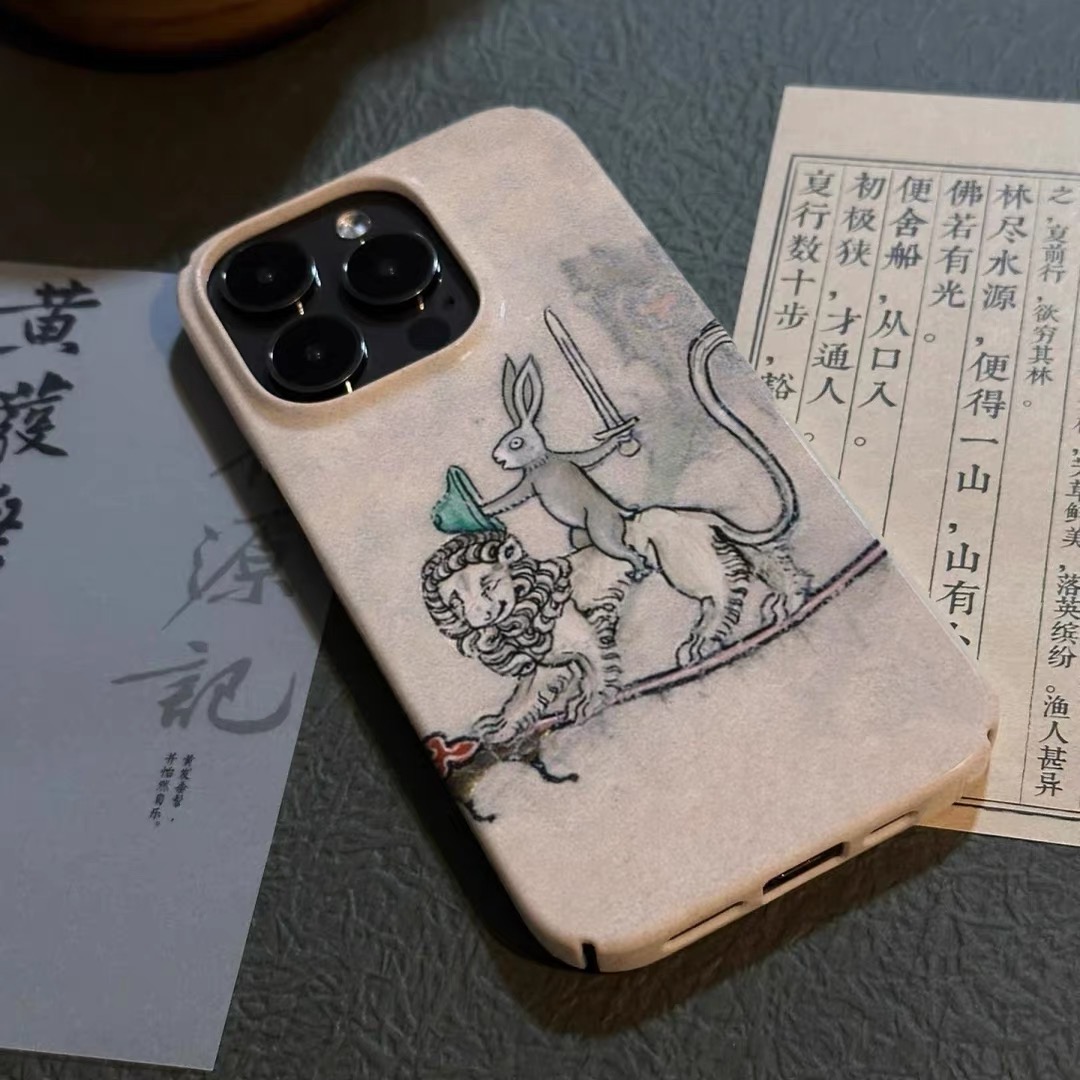 草鲜美,落英缤纷。渔人甚异
之,复前行,欲穷其林。
林尽水源,便得一山,山有
佛若有光。
便舍船,从口入。
初极狭,才通人。
复行数十步,豁
黄發
源記
黄发垂髫,
并怡然自乐。